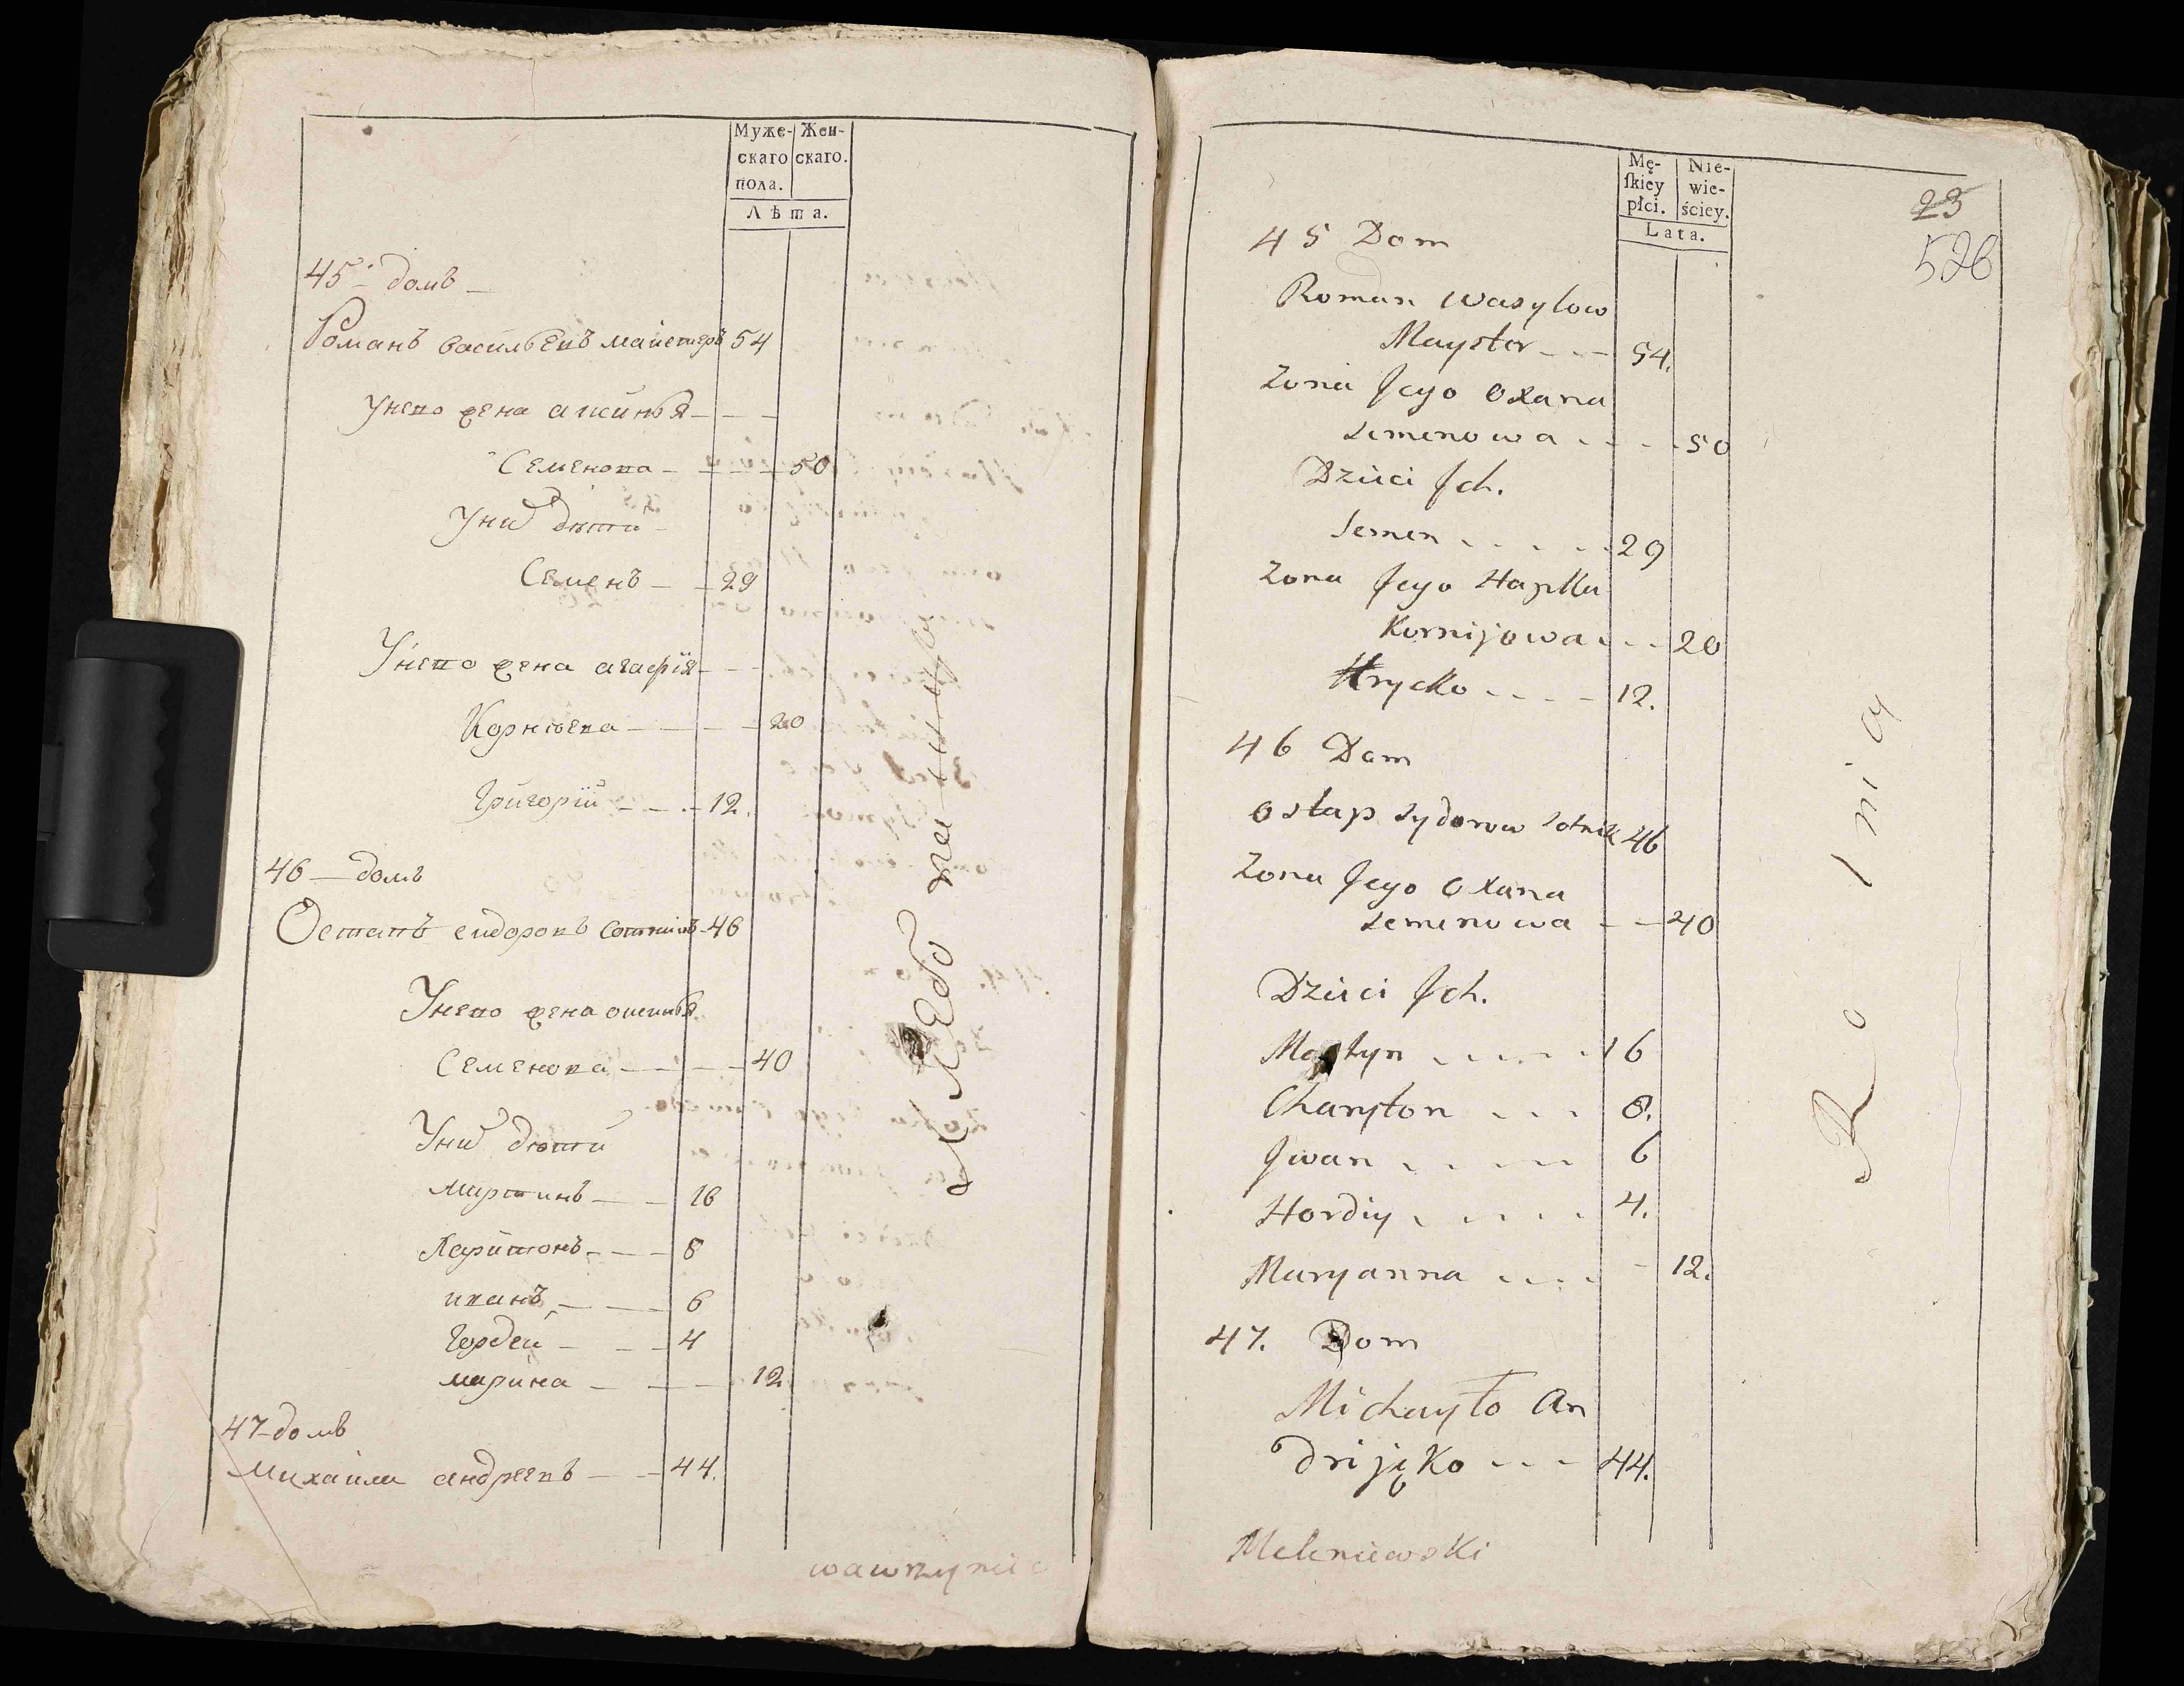 Муже- Жен-
скаго скаго.
пола.
Лѣта.
45 домъ
Романъ васильевъ майстеръ 54
Унего жена аксинья
Семенова 50
Уних дѣти
Семенъ 29
Унего жена агафїя
Корнїева 20
Григорїй 12.
46 домъ
Остапъ сидоровъ сотникъ 46
Унего жена оксинья
Семенова 40
Уних дѣти
мартинъ 16
Харитонъ 8
иванъ 6
Гордей 4
марина 12
47 домъ
михайла андреевъ 44.
хлебопашцы
wawrzyniec
Mę- Nie-
skiey wie-
płci. ściey.
Lata.
23
526
45 Dom
Roman Wasylow
Mayster 54.
Zona Jego Oxana
Semenowa 50
Dzieci Jch.
Semen 29
Zona Jego Hapka
Kornijowa 20
Hrycko 12.
46 Dom
Ostap Sydorow Sotnik 46
Zona Jego Oxana
Semenowa 40
Dzieci Jch.
Martyn 16
Charyton 8.
Jwan 6
Hordiy 4.
Maryanna 12.
47. Dom
Michayło An
drijęko 44.
Rolnicy
Meleniewski